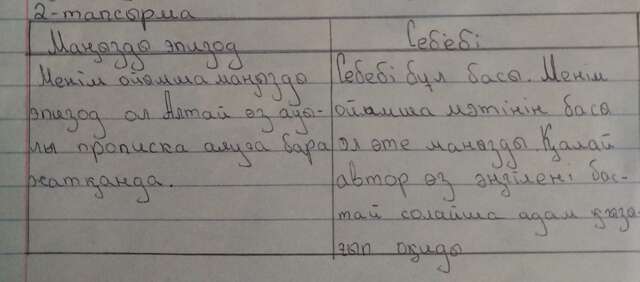 2-тапсырма
Маңызды эпизод
Себебі
Менім ойымша маңызды
эпизод ол Алтай өз ауы-
лы прописка алуға бара
жатқанда.
Себебі бұл басы. Менім
ойымша мәтінің басы
ол өте маңызды Қалай
автор өз әңгілені бас-
тай солайша адам қыза-
ғып оқиды